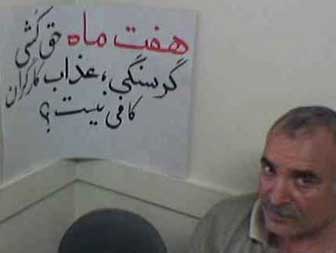 هفت ماه حق کُشی
گرسنگی، عذاب کارگران
کافی نیست؟